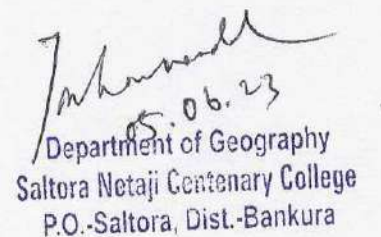 05.06.23
Department of Geography
Saltora Netaji Centenary College
P.O.-Saltora, Dist.-Bankura